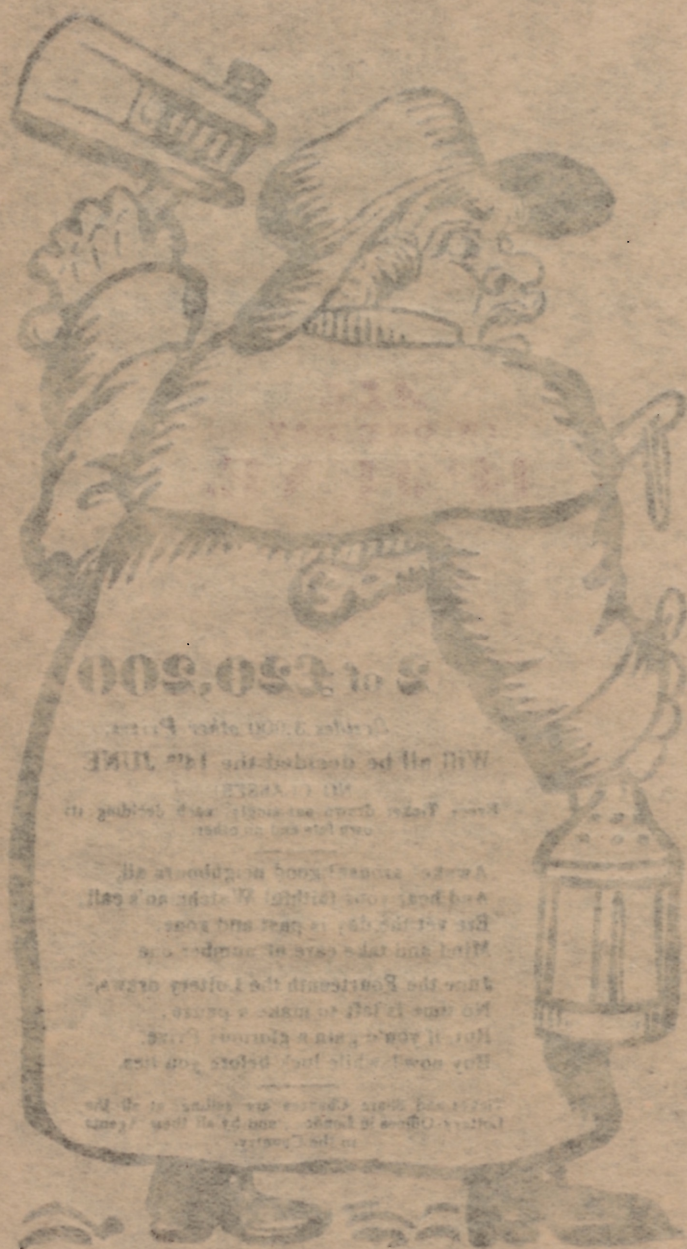 2 of £20,200
Besides 3,000 other Prizes
Will all be decided the 14th JUNE
NO CLASSES!
Every Ticket drawn out singly, each deciding its
own fate and no other.
Awake! arouse! good neighbours all,
And hear your faithful Watchman's call,
Ere yet the day is past and gone:
Mind and take care of number one
June the Fourteenth the Lottery draws,
No time is left to make a pause,
But, if you'd gain a glorious Prize,
Buy now! while luck before you lies.
Tickets and Share Chances are selling at all the
Lottery Offices in London, and by all their Agents
in the Country.